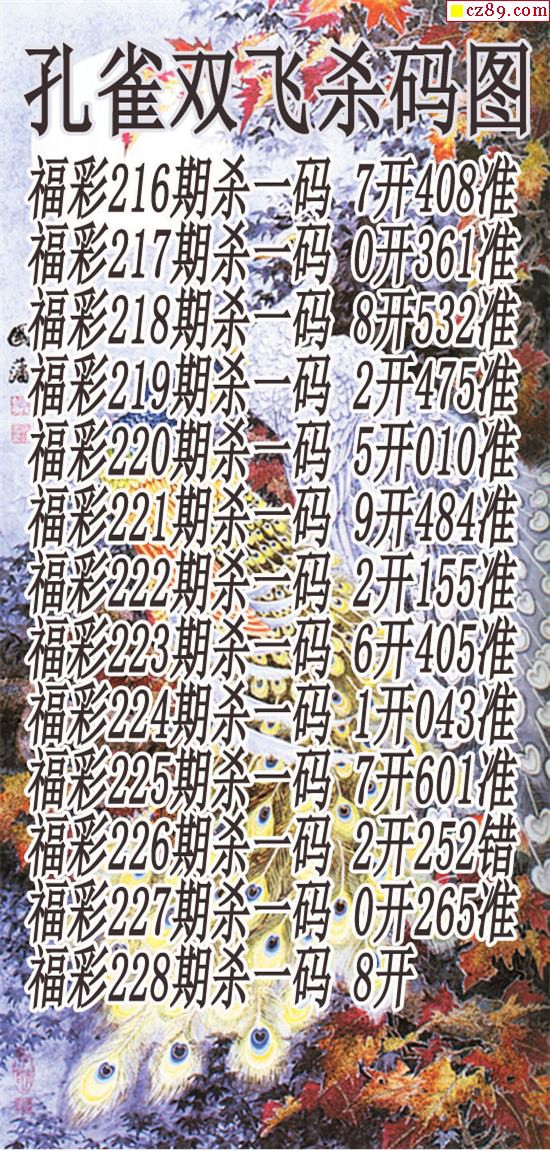 cz89.com
孔雀双飞杀码图
福彩216期杀一码 7开408准
福彩217期杀一码 0开361准
福彩218期杀一码 8开532准
福彩219期杀一码 2开475准
福彩220期杀一码 5开010准
福彩221期杀一码 9开484准
福彩222期杀一码 2开155准
福彩223期杀一码 6开405准
福彩224期杀一码 1开043准
福彩225期杀一码 7开601准
福彩226期杀一码 2开252错
福彩227期杀一码 0开265准
福彩228期杀一码 8开